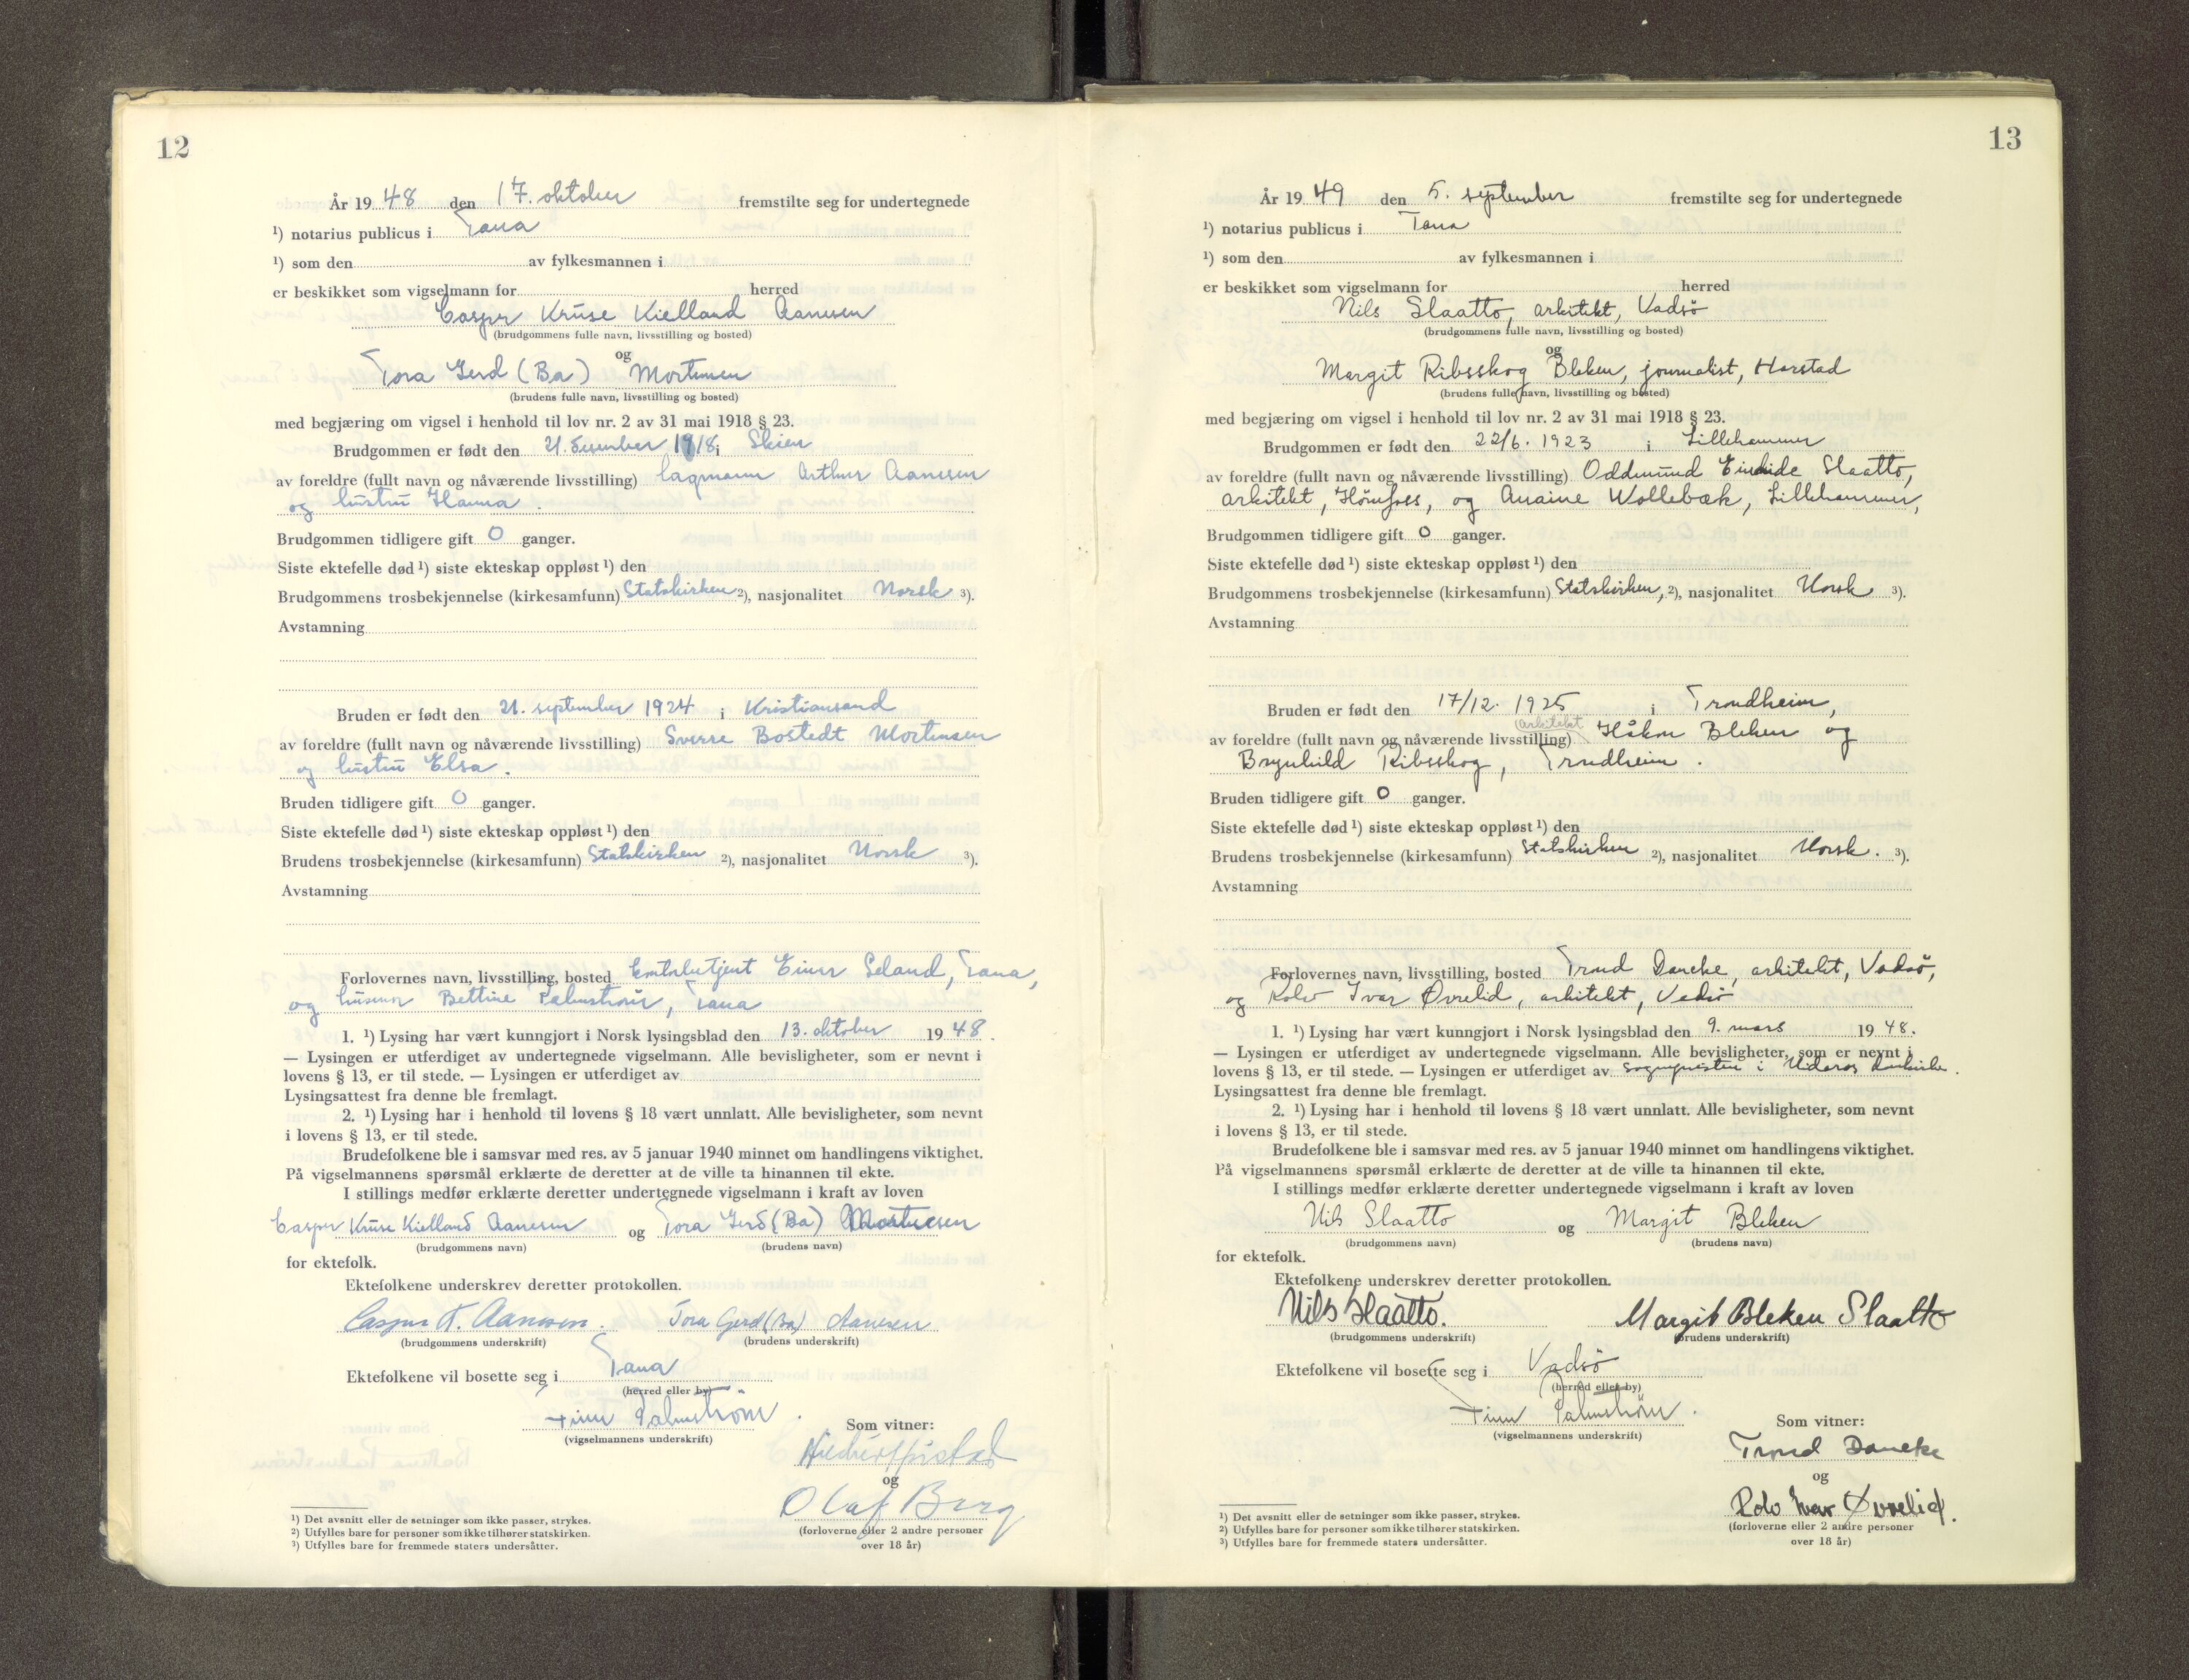 12
År 19 48 den 17. oktober fremstilte seg for undertegnede
¹) notarius publicus i Tana
¹) som den av fylkesmannen i
er beskikket som vigselmann for herred
Casper Kruse Kielland Aanesen
(brudgommens fulle navn, livsstilling og bosted)
og
Tora Gerd (Ba) Mortensen
(brudens fulle navn, livsstilling og bosted)
med begjæring om vigsel i henhold til lov nr. 2 av 31 mai 1918 § 23.
Brudgommen er født den 21. desember 1918 i Skien
av foreldre (fullt navn og nåværende livsstilling) lagmann Arthur Aanesen
og hustru Hanna.
Brudgommen tidligere gift 0 ganger.
Siste ektefelle død ¹) siste ekteskap oppløst ¹) den
Brudgommens trosbekjennelse (kirkesamfunn) Statskirken ²), nasjonalitet Norsk ³).
Avstamning
Bruden er født den 21. september 1924 i Kristiansand
av foreldre (fullt navn og nåværende livsstilling) Sverre Bostedt Mortensen
og hustru Elsa.
Bruden tidligere gift 0 ganger.
Siste ektefelle død ¹) siste ekteskap oppløst ¹) den
Brudens trosbekjennelse (kirkesamfunn) Statskirken ²), nasjonalitet Norsk ³).
Avstamning
Forlovernes navn, livsstilling, bosted Einar Seland, Tana,
og husmor Bettine Palmstrøm, Tana
1. ¹) Lysing har vært kunngjort i Norsk lysingsblad den 13. oktober 19 48.
— Lysingen er utferdiget av undertegnede vigselmann. Alle bevisligheter, som er nevnt i
lovens § 13, er til stede. — Lysingen er utferdiget av
Lysingsattest fra denne ble fremlagt.
2. ¹) Lysing har i henhold til lovens § 18 vært unnlatt. Alle bevisligheter, som nevnt
i lovens § 13, er til stede.
Brudefolkene ble i samsvar med res. av 5 januar 1940 minnet om handlingens viktighet.
På vigselmannens spørsmål erklærte de deretter at de ville ta hinannen til ekte.
I stillings medfør erklærte deretter undertegnede vigselmann i kraft av loven
Casper Kruse Kielland Aanesen og Tora Gerd (Ba) Mortensen
(brudgommens navn) (brudens navn)
for ektefolk.
Ektefolkene underskrev deretter protokollen.
Casper K. Aanesen. Tora Gerd (Ba) Aanesen
(brudgommens underskrift) (brudens underskrift)
Ektefolkene vil bosette seg i Tana
(herred eller by)
Finn Palmstrøm.
(vigselmannens underskrift)
Som vitner:
og
Olaf Berg
(forloverne eller 2 andre personer
over 18 år)
¹) Det avsnitt eller de setninger som ikke passer, strykes.
²) Utfylles bare for personer som ikke tilhører statskirken.
³) Utfylles bare for fremmede staters undersåtter.
13
År 19 49 den 5. september fremstilte seg for undertegnede
¹) notarius publicus i Tana
¹) som den av fylkesmannen i
er beskikket som vigselmann for herred
Nils Slaatto, arkitekt, Vadsø
(brudgommens fulle navn, livsstilling og bosted)
og
Margit Ribsskog Bleken, journalist, Harstad
(brudens fulle navn, livsstilling og bosted)
med begjæring om vigsel i henhold til lov nr. 2 av 31 mai 1918 § 23.
Brudgommen er født den 22/6. 1923 i Lillehammer
av foreldre (fullt navn og nåværende livsstilling) Oddmund Eindride Slaatto,
arkitekt, Hønefoss, og Wollebæk, Lillehammer,
Brudgommen tidligere gift 0 ganger.
Siste ektefelle død ¹) siste ekteskap oppløst ¹) den
Brudgommens trosbekjennelse (kirkesamfunn) Statskirken, ²), nasjonalitet Norsk ³).
Avstamning
Bruden er født den 17/12. 1925 i Trondheim,
(arkitekt
av foreldre (fullt navn og nåværende livsstilling) Håkon Bleken og
Brynhild Ribsskog, Trondheim.
Bruden tidligere gift 0 ganger.
Siste ektefelle død ¹) siste ekteskap oppløst ¹) den
Brudens trosbekjennelse (kirkesamfunn) Statskirken ²), nasjonalitet Norsk. ³).
Avstamning
Forlovernes navn, livsstilling, bosted Trond Dancke, arkitekt, Vadsø,
og Rolv Ivar Øvrelid, arkitekt, Vadsø
1. ¹) Lysing har vært kunngjort i Norsk lysingsblad den 9. mars 19 48.
— Lysingen er utferdiget av undertegnede vigselmann. Alle bevisligheter, som er nevnt i
lovens § 13, er til stede. — Lysingen er utferdiget av sogneprsten i Nidaros domkirke.
Lysingsattest fra denne ble fremlagt.
2. ¹) Lysing har i henhold til lovens § 18 vært unnlatt. Alle bevisligheter, som nevnt
i lovens § 13, er til stede.
Brudefolkene ble i samsvar med res. av 5 januar 1940 minnet om handlingens viktighet.
På vigselmannens spørsmål erklærte de deretter at de ville ta hinannen til ekte.
I stillings medfør erklærte deretter undertegnede vigselmann i kraft av loven
Nils Slaatto og Margit Bleken
(brudgommens navn) (brudens navn)
for ektefolk.
Ektefolkene underskrev deretter protokollen.
Nils Slaatto. Margit Bleken Slaatto
(brudgommens underskrift) (brudens underskrift)
Ektefolkene vil bosette seg i Vadsø
(herred eller by)
Finn Palmstrøm.
(vigselmannens underskrift)
Som vitner:
Trond Dancke
og
Rolv Ivar Øvrelid.
(forloverne eller 2 andre personer
over 18 år)
¹) Det avsnitt eller de setninger som ikke passer, strykes.
²) Utfylles bare for personer som ikke tilhører statskirken.
³) Utfylles bare for fremmede staters undersåtter.